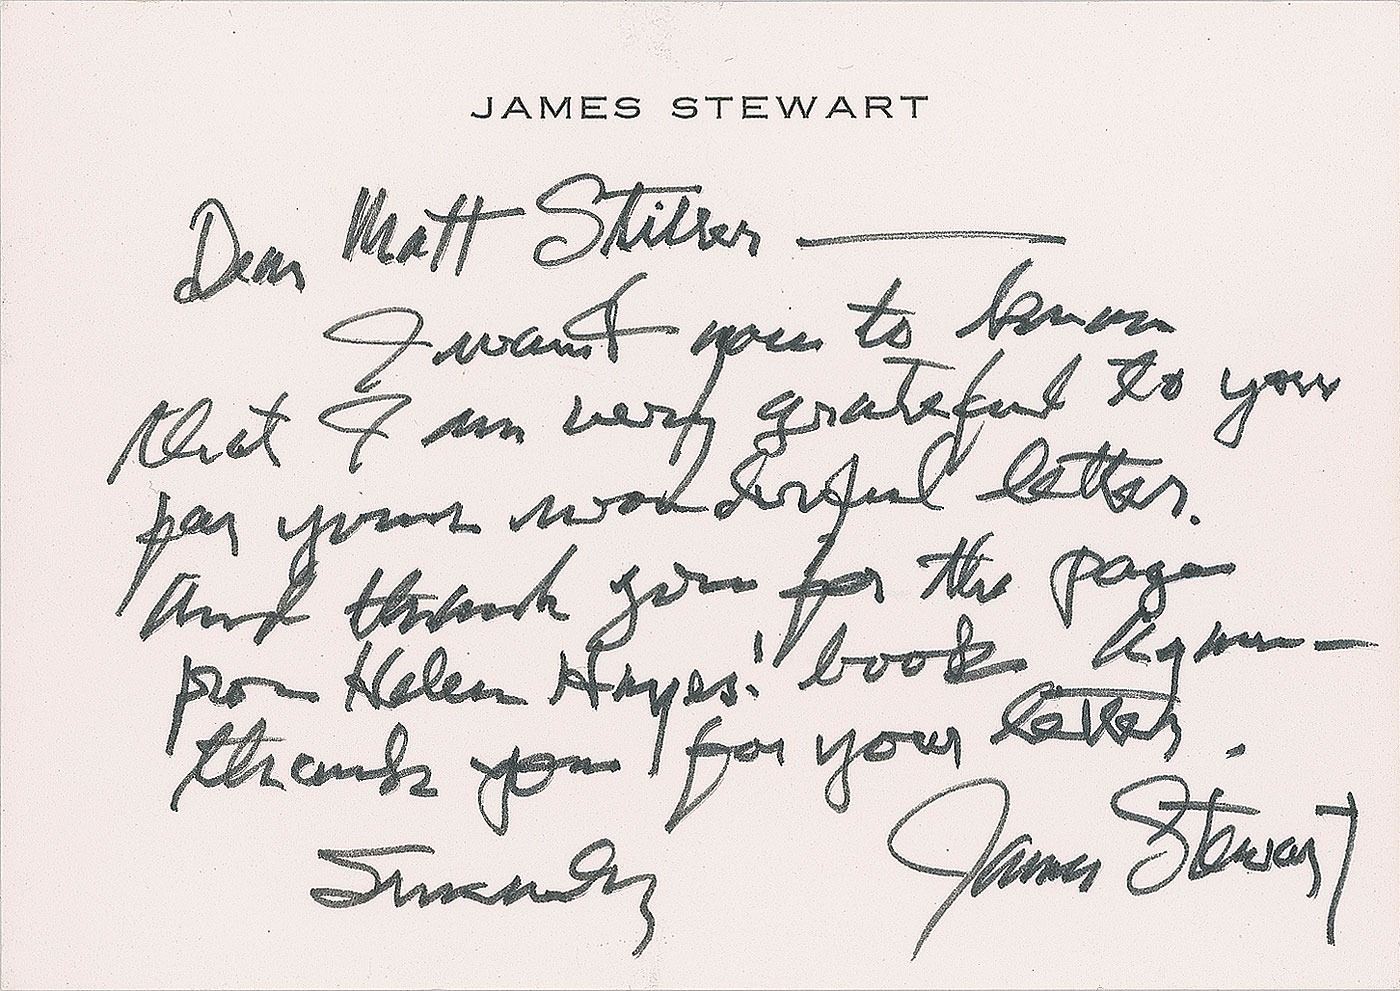 JAMES STEWART
Dear Matt Stiller —
I want you to know
that I am very grateful to you
for your wonderful letter.
And thank you for the page
from Helen Hayes' book Again —
thank you for your letter.
Sincerely
James Stewart